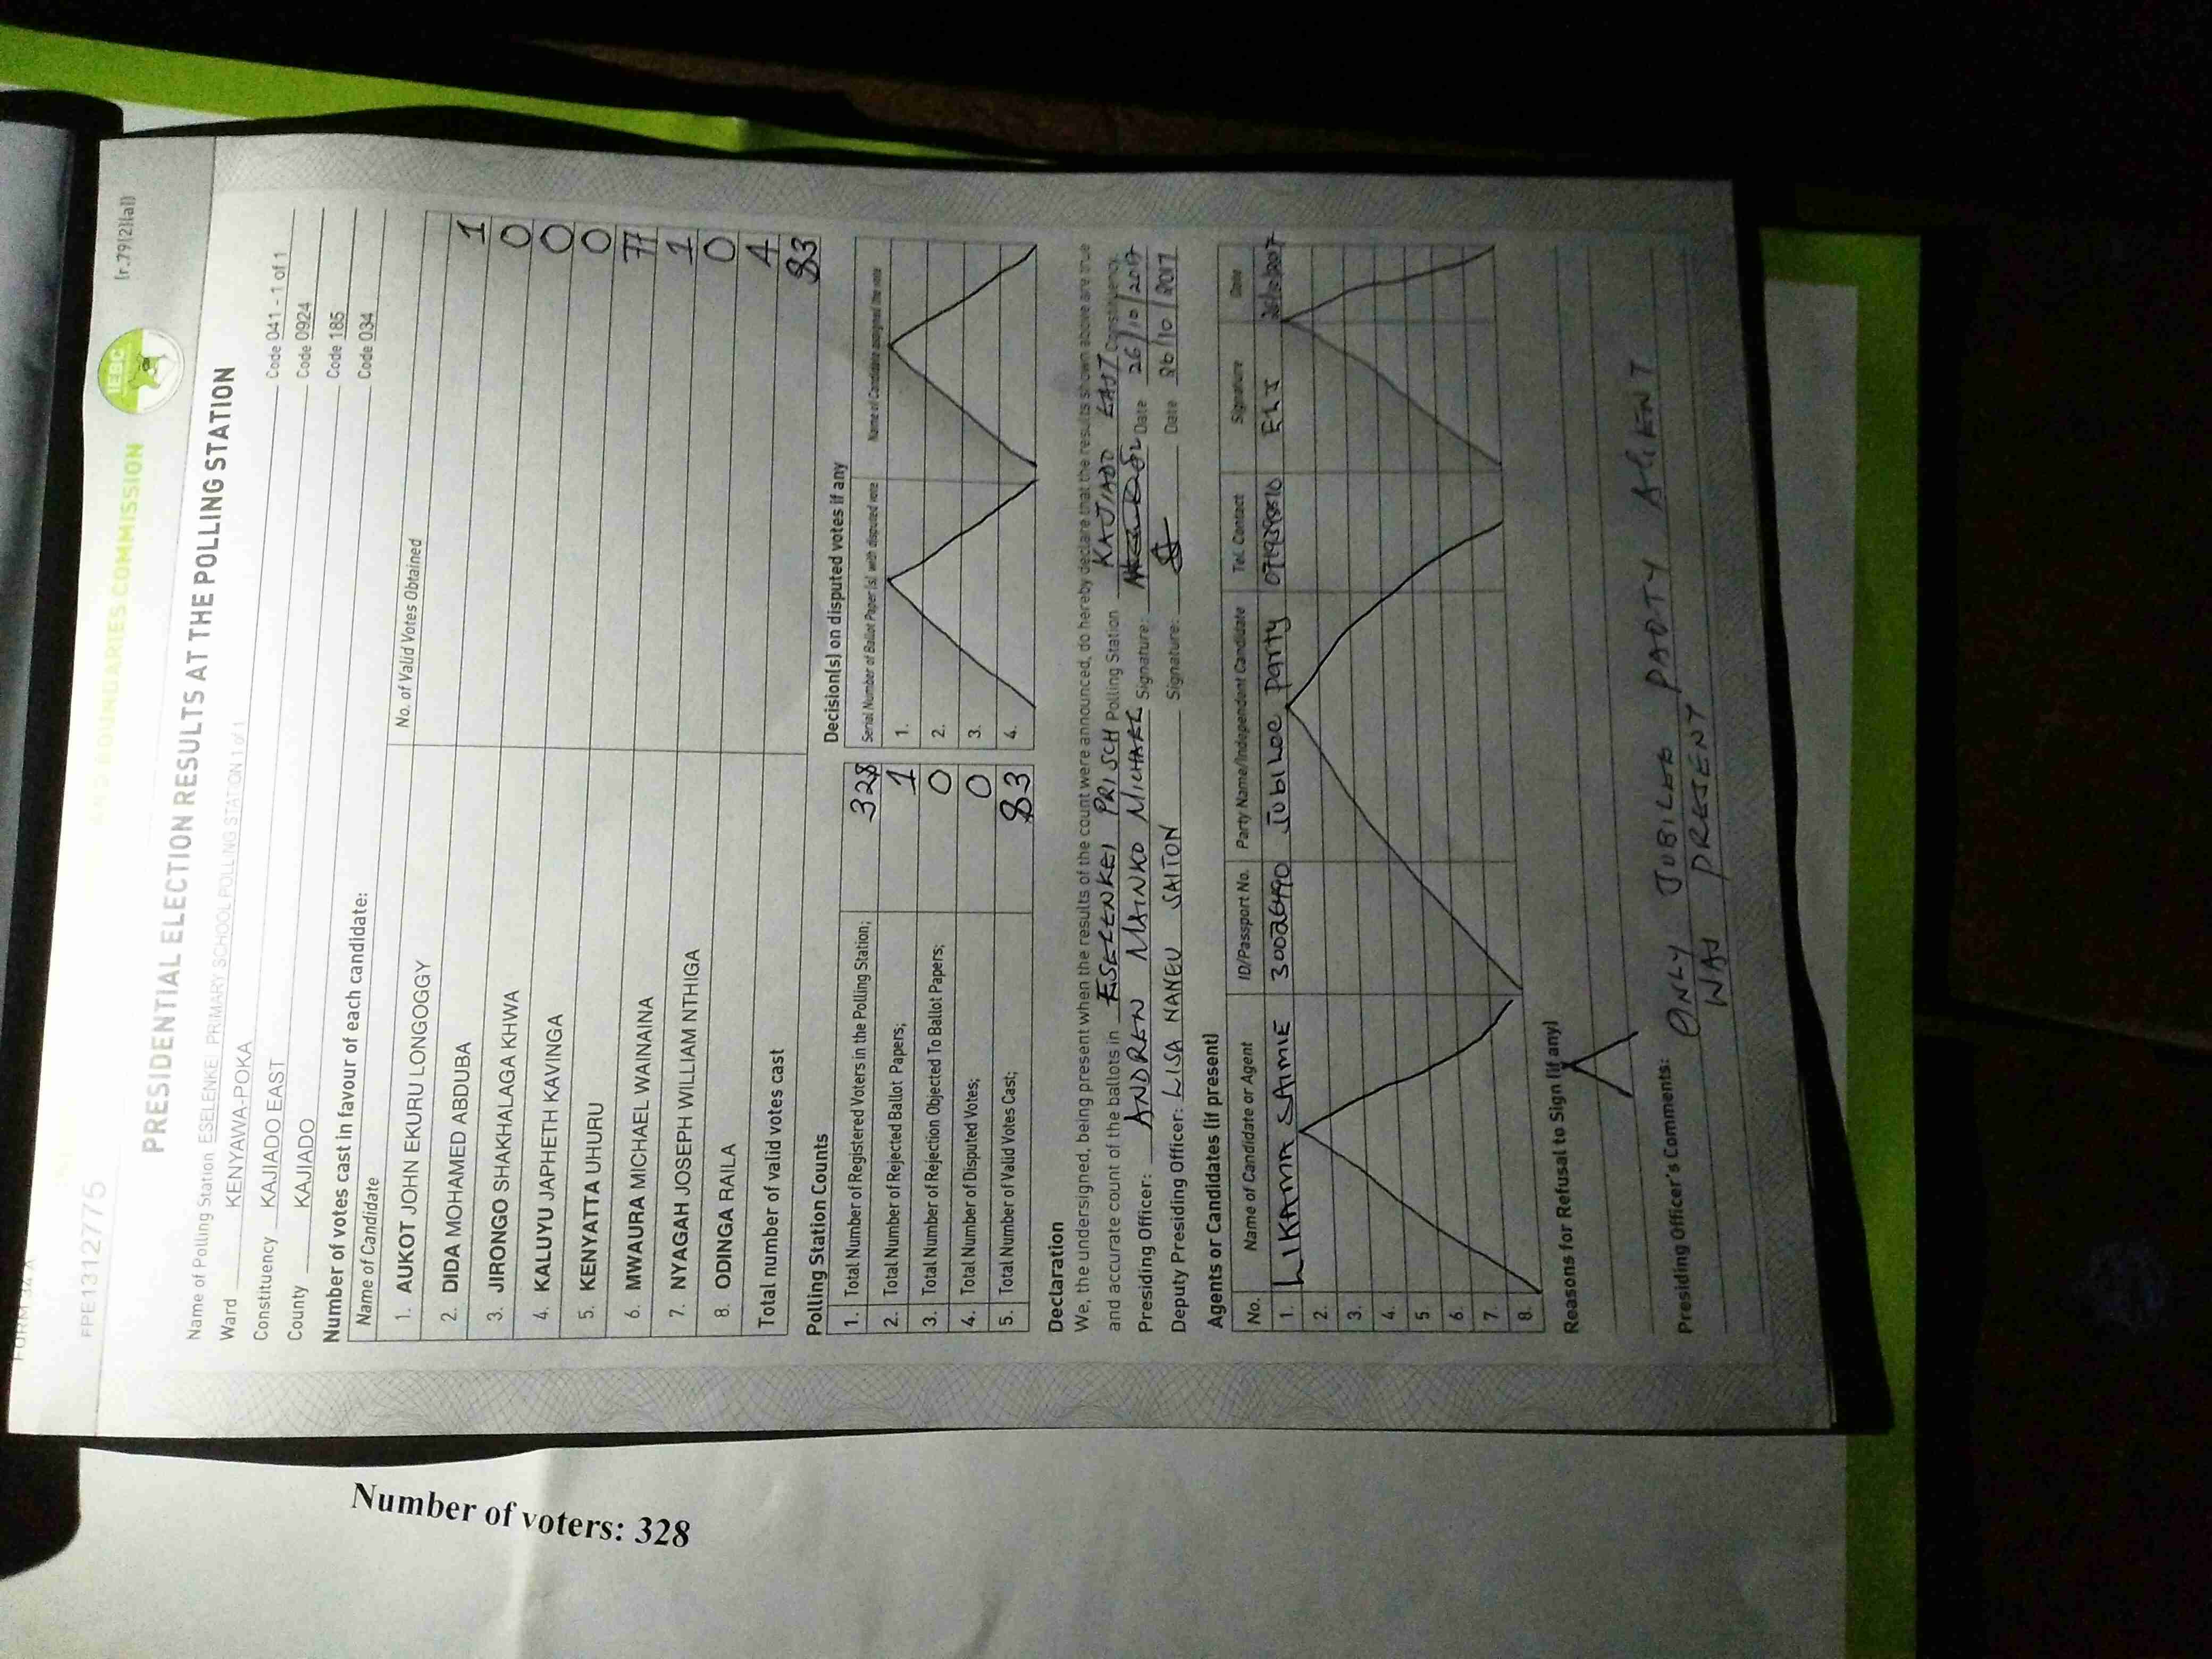 FORM 34 A
(r.79(2)(a))
FPE1312775
IEBC
AND BOUNDARIES COMMISSION
PRESIDENTIAL ELECTION RESULTS AT THE POLLING STATION
Name of Polling Station ESELENKEI PRIMARY SCHOOL POLLING STATION 1 of 1 Code 041 - 1 of 1
Ward KENYAWA-POKA Code 0924
Constituency KAJIADO EAST Code 185
County KAJIADO Code 034
Number of votes cast in favour of each candidate:
Name of Candidate No. of Valid Votes Obtained
1. AUKOT JOHN EKURU LONGOGGY 1
2. DIDA MOHAMED ABDUBA 0
3. JIRONGO SHAKHALAGA KHWA 0
4. KALUYU JAPHETH KAVINGA 0
5. KENYATTA UHURU 77
6. MWAURA MICHAEL WAINAINA 1
7. NYAGAH JOSEPH WILLIAM NTHIGA 0
8. ODINGA RAILA 4
Total number of valid votes cast 83
Polling Station Counts
1. Total Number of Registered Voters in the Polling Station; 328
2. Total Number of Rejected Ballot Papers; 1
3. Total Number of Rejection Objected To Ballot Papers; 0
4. Total Number of Disputed Votes; 0
5. Total Number of Valid Votes Cast; 83
Decision(s) on disputed votes if any
Serial Number of Ballot Paper (s) with disputed vote Name of Candidate assigned the vote
1.
2.
3.
4.
Declaration
We, the undersigned, being present when the results of the count were announced, do hereby declare that the results shown above are true
and accurate count of the ballots in ESELENKEI PRI SCH Polling Station KAJIADO EAST Constituency.
Presiding Officer: ANDREW MAINKO MICHAEL Signature: Date 26/10/2017
Deputy Presiding Officer: LISA NANEU SAITON Signature: Date 26/10/2017
Agents or Candidates (if present)
No. Name of Candidate or Agent ID/Passport No. Party Name/Independent Candidate Tel. Contact Signature Date
1. LIKAMA SAMIE 30026490 Jubilee party 26/10/2017
2.
3.
4.
5.
6.
7.
8.
Reasons for Refusal to Sign (if any)
Presiding Officer's Comments: ONLY JUBILEE PARTY AGENT
WAS PRESENT
Number of voters: 328